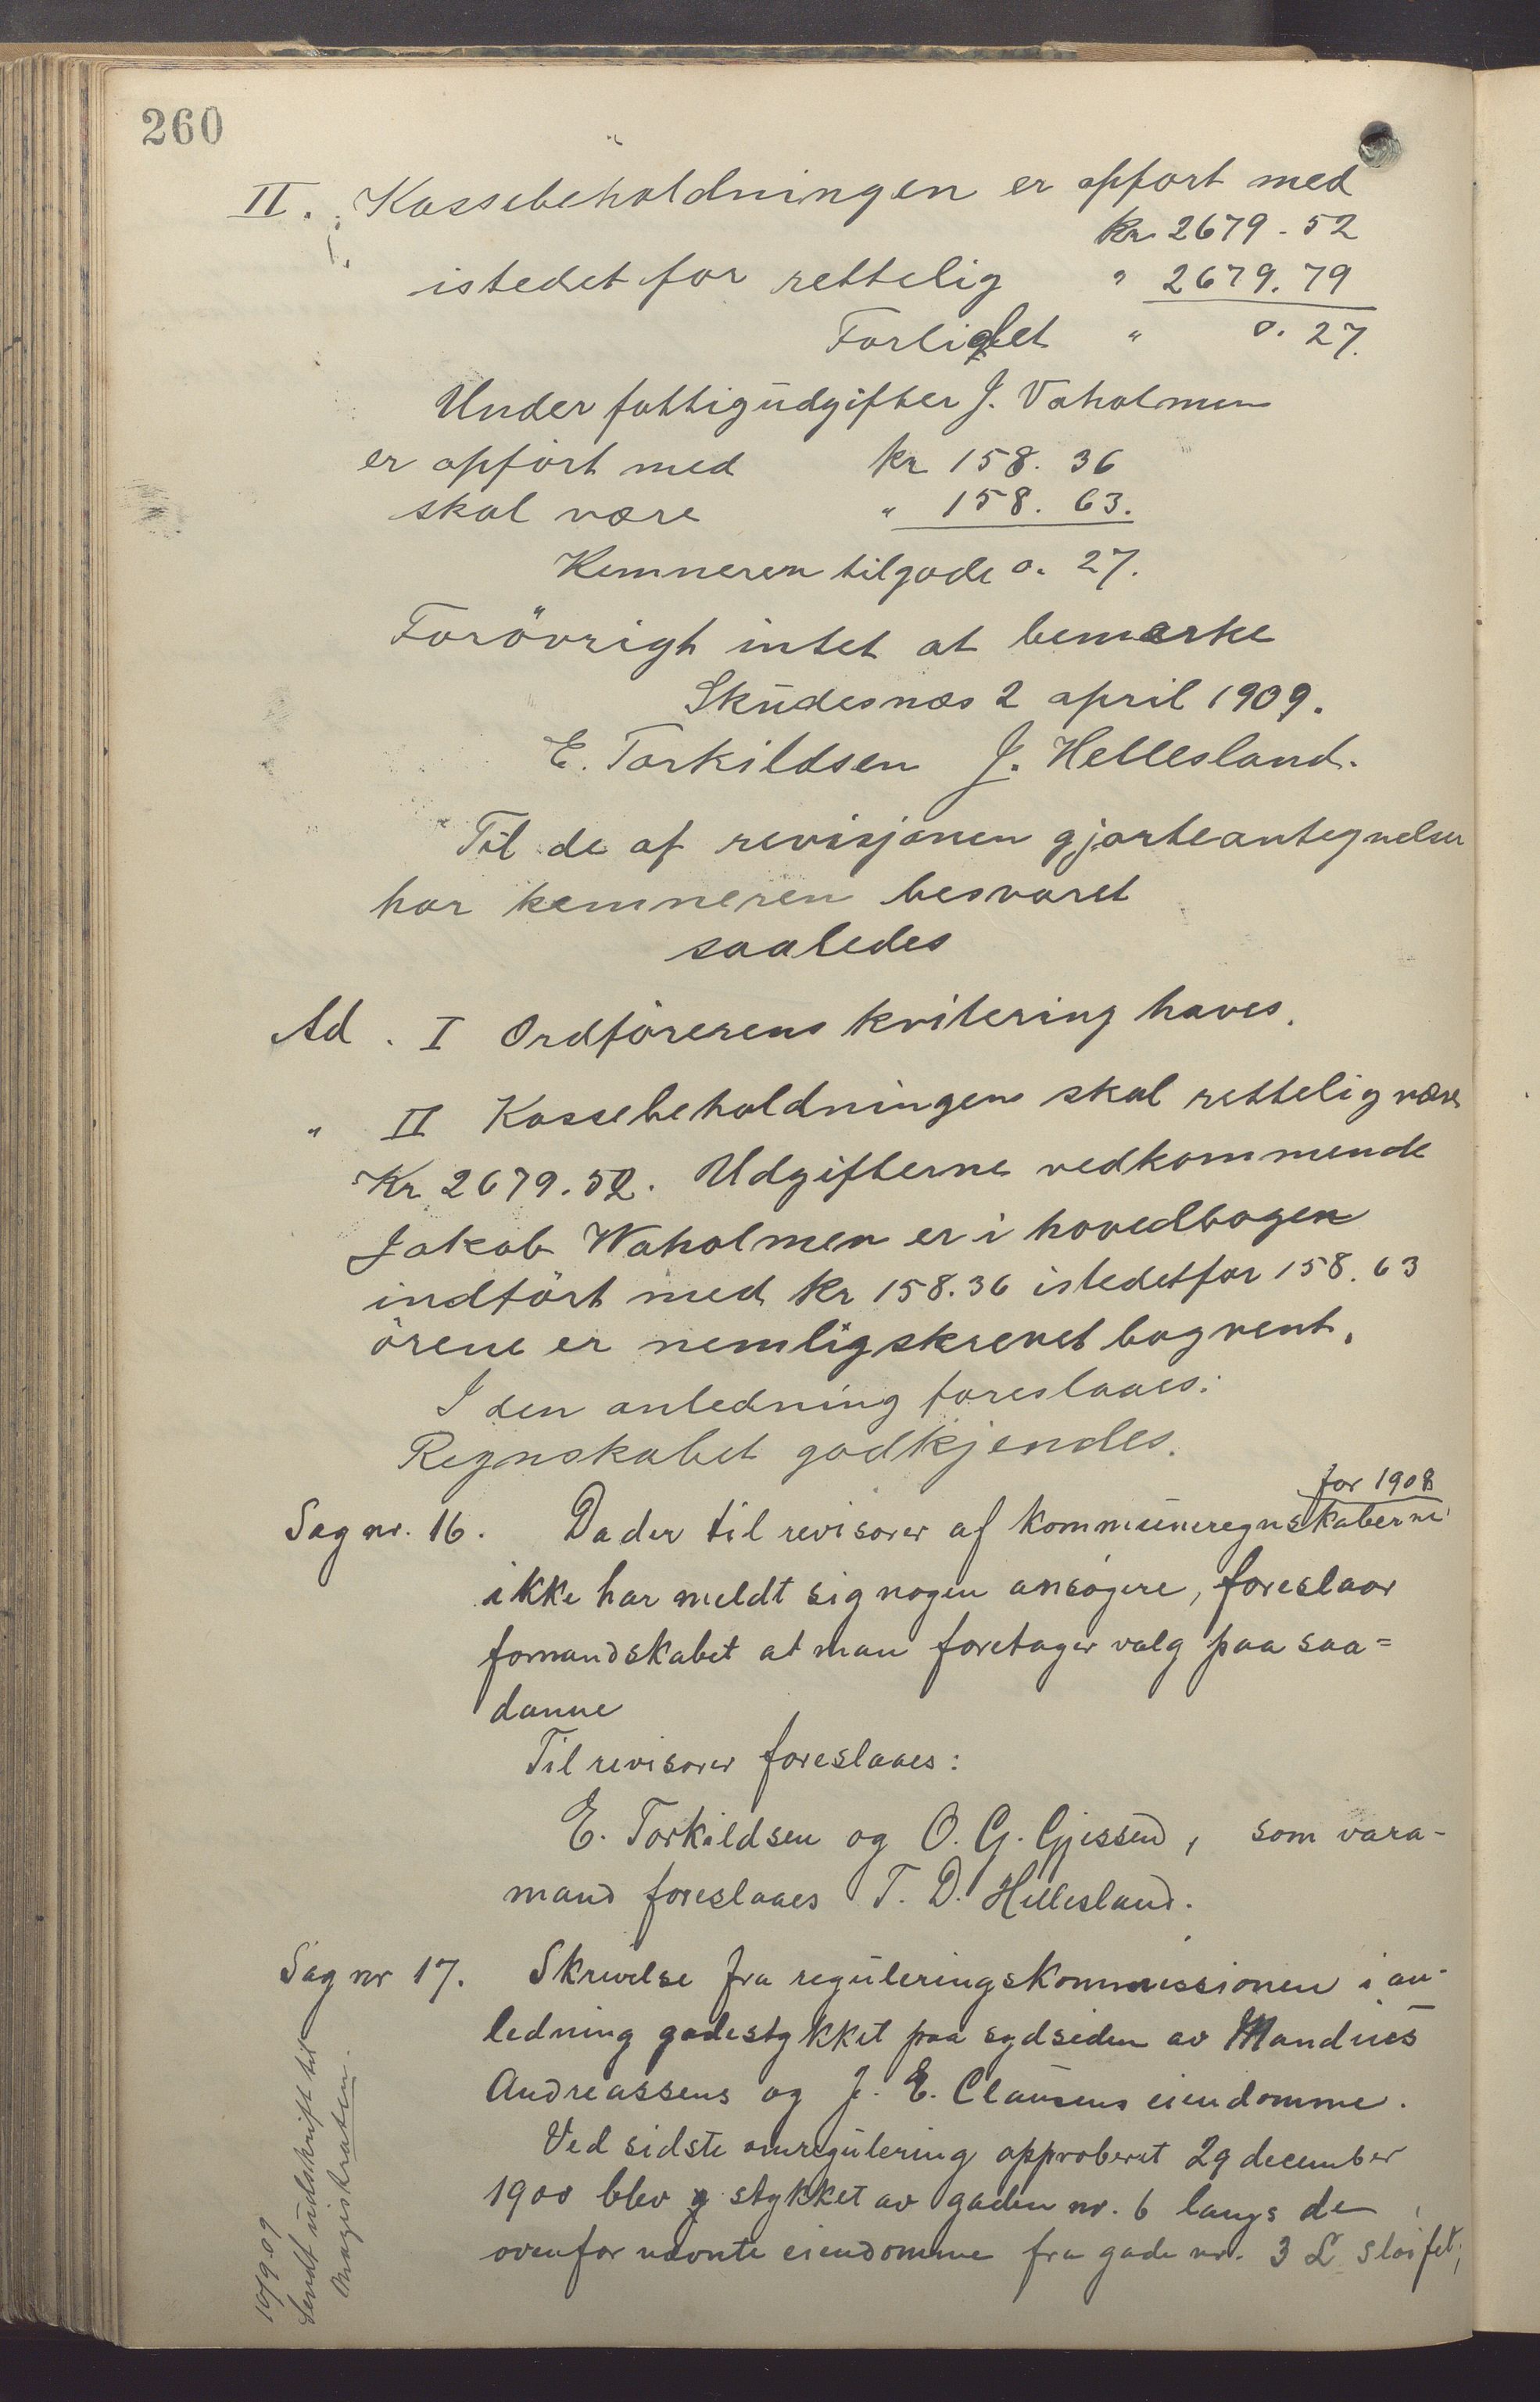 260
II. Kassebeholdningen er opført med
kr 2679-52
istedet for rettelig " 2679.79
Forliglet " 0.27.
Under fattigudgifter J. Vaholmen
er opført med kr 158.36
skal være " 158.63.
Kemneren tilgode 0.27.
Forøvrigt intet at bemærke
Skudesnæs 2 april 1909.
E. Torkildsen J. Hellesland.
Til de af revisjonen gjorte antegnelser
har kemneren besvaret
saaledes
Ad. I Ordførerens kvitering haves.
" II Kassebeholdningen skal rettelig være
Kr 2679.52. Udgifterne vedkommende
Jakob Waholmen er i hovedbogen
indført med kr 158.36 istedetfor 158.63
ørene er nemlig skrevet bagvent.
I den anledning foreslaaes:
Regnskabet godkjendes.
for 1908
Sag nr. 16. Da der til revisorer af kommuneregnskaberne
ikke har meldt sig nogen ansøgere, foreslaar
formandskabet at man foretager valg paa saa=
danne
Til revisorer foreslaaes:
E. Torkildsen og O. G. Gjessen, som vara-
mand foreslaaes T. D. Hellesland.
Sag nr 17. Skrivelse fra reguleringskommissionen i an-
ledning gadestykket paa sydsiden av Mandius
Andreassens og J. E. Clausens eiendomme.
Ved sidste omregulering approberet 29 december
1900 blev stykket av gaden nr. 6 langs de
ovenfor nævnte eiendomme fra gade nr. 3 L sløifet;
10/9 09
Sendt utskrift til
Magistraten.